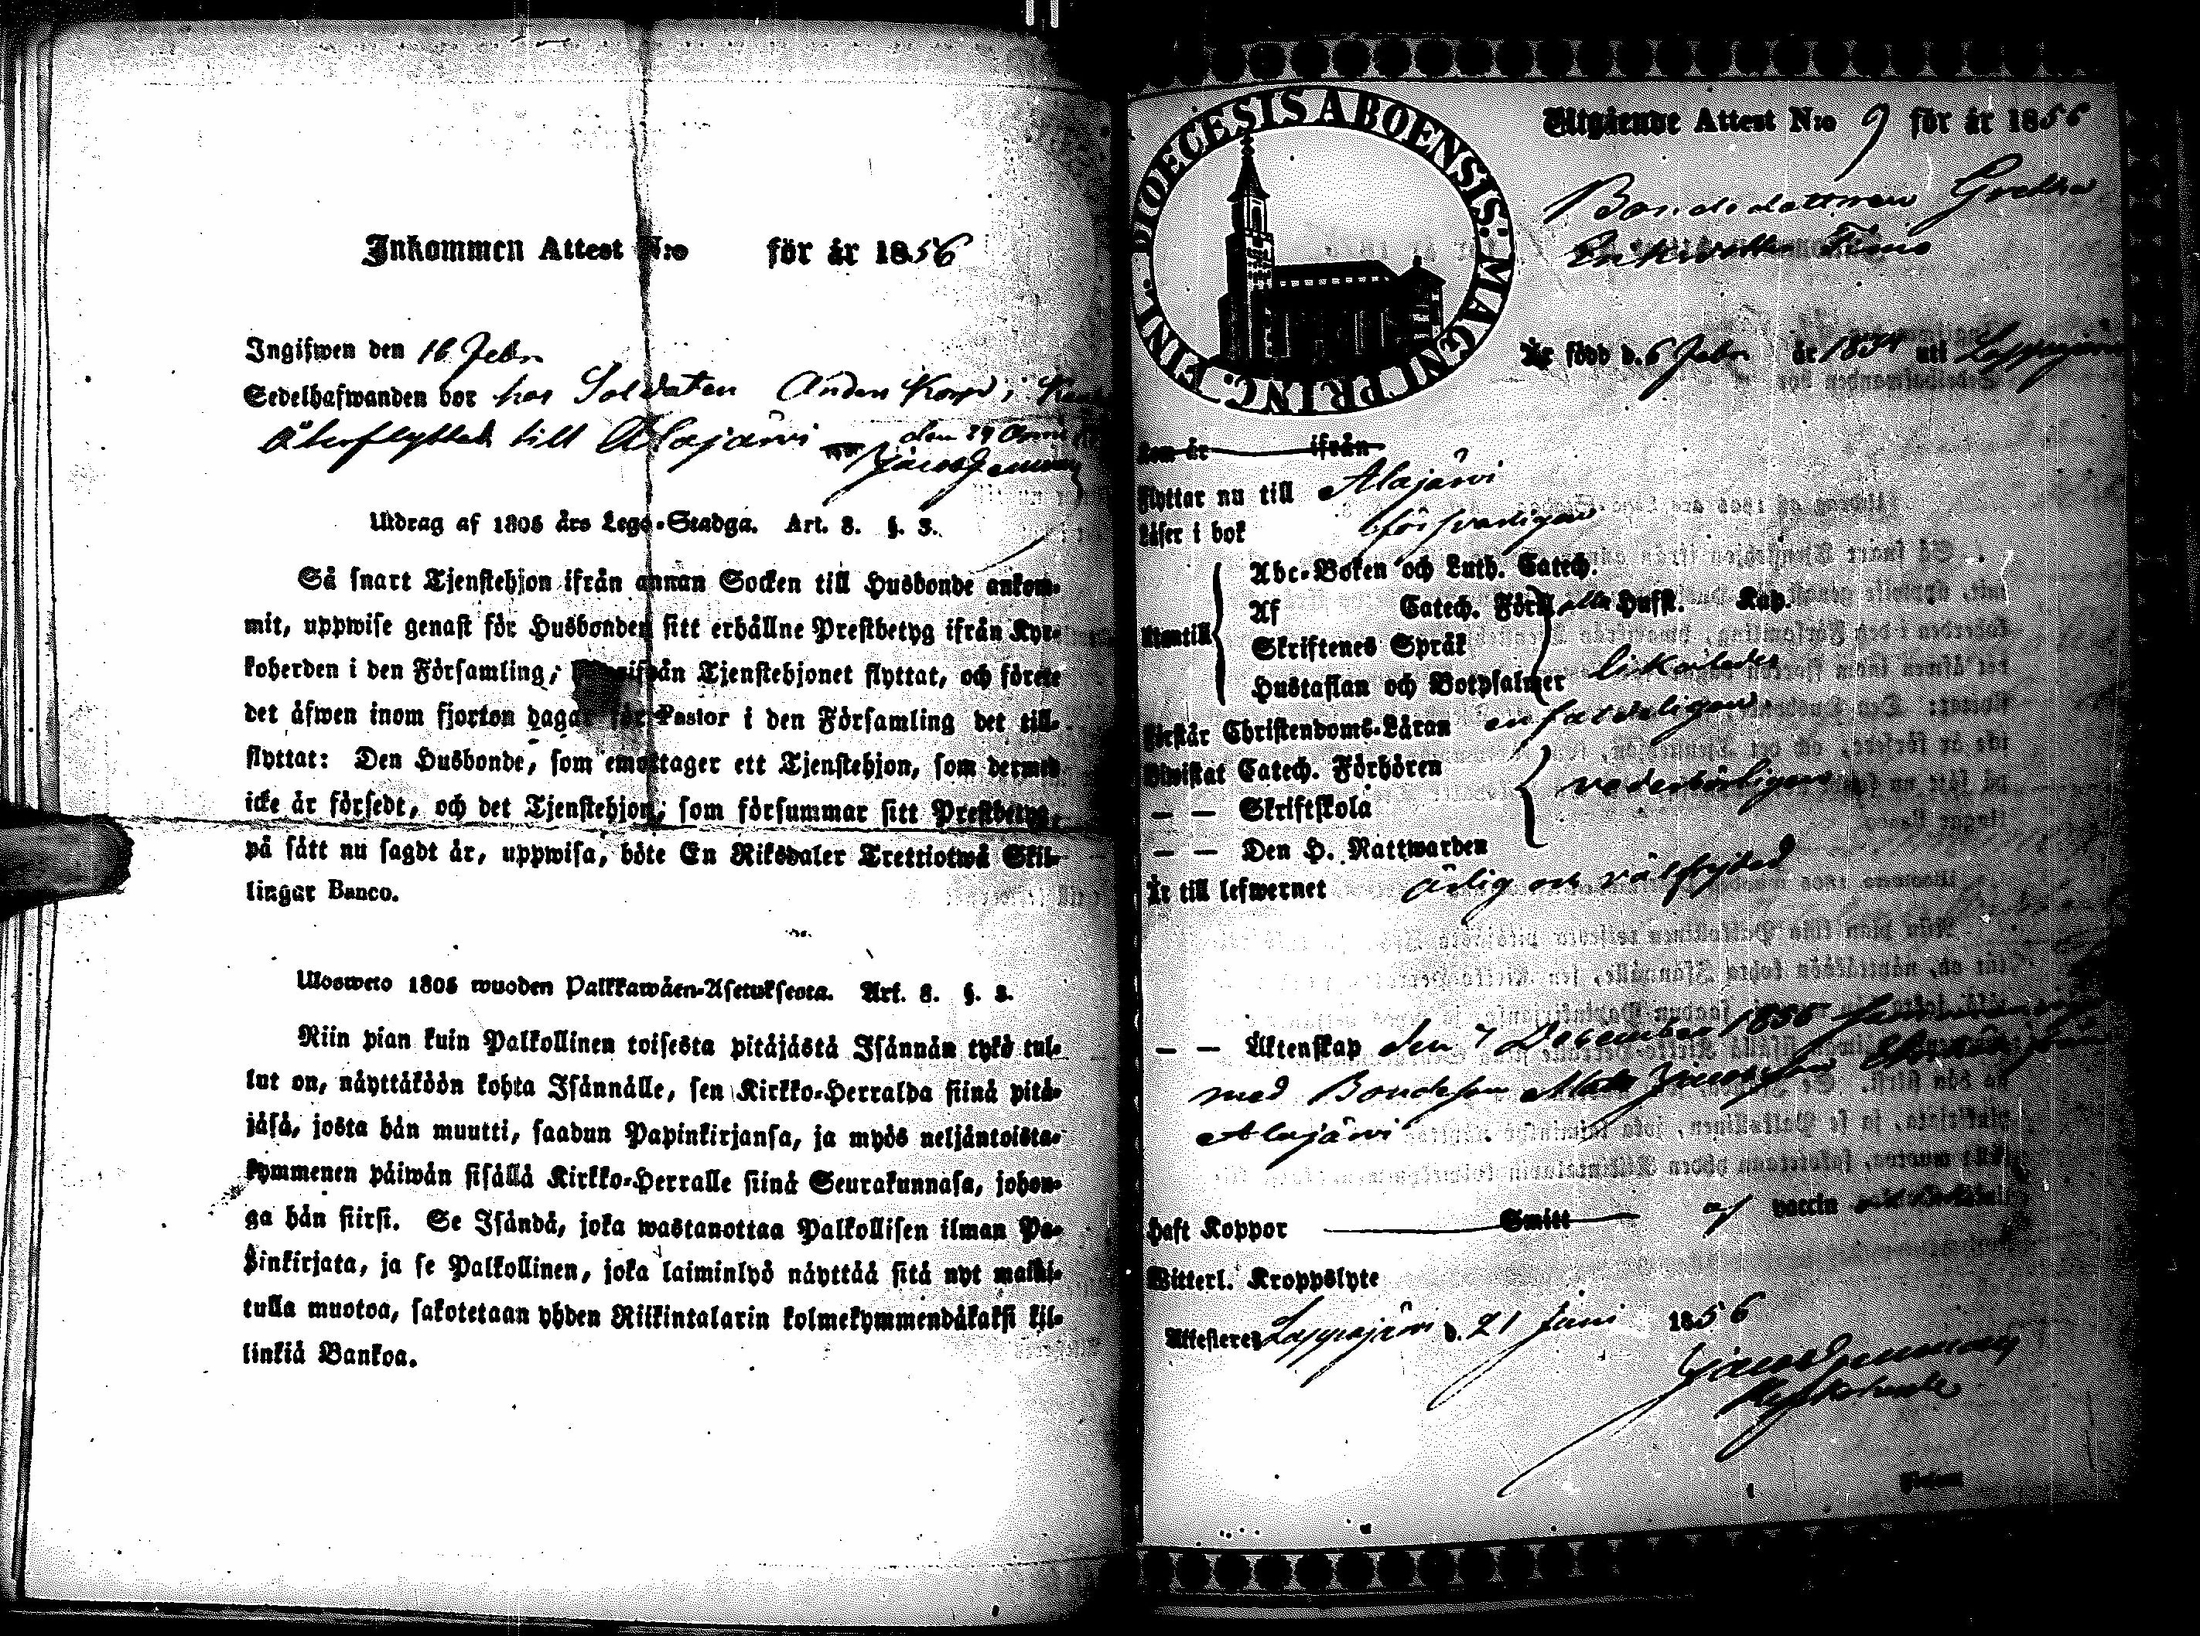 Inkommen Attest N:o för år 1856
Ingifwen den 16 Febr
Sedelhafwanden bor hos Soldaten Anders Korp i
Återflyttat till Alajärvi den 24
Utdrag af 1805 års Lego-Stadga. Art. 8. §. 3.
Så snart Tjenstehjon ifrån annan Socken till Husbonde ankom-
mit, uppwise genast för Husbonden sitt erhållne Prestbetyg ifrån Kyr-
koherden i den Församling, ifrån Tjenstehjonet flyttat, och förete
det äfwen inom fjorton dagar för Pastor i den Församling det till-
flyttat: Den Husbonde, som emottager ett Tjenstehjon, som dermed
icke är försedt, och det Tjenstehjon, som försummar sitt Prestbetyg,
på sätt nu sagdt är, uppwisa, böte En Riksdaler Trettiotwå Skil-
lingar Banco.
Ulosweto 1805 wuoden Palkkawäen-Asetuksesta. Art. 8. §. 3.
Niin pian kuin Palkollinen toisesta pitäjästä Isännän tykö tul-
lut on, näyttäköön kohta Isännälle, sen Kirkko-Herralda siinä pitä-
jäsä, josta hän muutti, saadun Papinkirjansa, ja myös neljäntoista-
kymmenen päiwän sisällä Kirkko-Herralle siinä Seurakunnasa, johon-
ga hän siirsi. Se Isändä, joka wastanottaa Palkollisen ilman Pa-
pinkirjata, ja se Palkollinen, joka laiminlyö näyttää sitä nyt maini-
tulla muotoa, sakotetaan yhden Riikintalarin kolmekymmendäkaksi kil-
linkiä Bankoa.
DIOECESIS ABOENSIS. MAGNI PRINC. FINL.
Utgående Attest N:o 9 för år 1856
Bondedottren Gretha
Är född d. 6 Febr år 1834 uti Lappajärvi
Som år ifrån
Flyttar nu till Alajärvi
Läser i bok försvarligen
Utantill
Abc-Boken och Luth. Catech.
Af Catech. Förkl alla Hufst. Kap.
Skriftenes Språk
Hustaflan och Botpsalmer likaledes
Förstår Christendoms-Läran enfaldeligen
Bivistat Catech. Förhören
— — Skriftskola vederbörligen
— — Den H. Nattwarden
Är till lefwernet ärlig och välfrejdad
— — Äktenskap den 7 December 1856
med Bondeson Matts Jacobsson
Alajärvi
Haft Koppor Smitt af vaccin
Witterl. Kroppslyte
Attesteres Lappajärvi d. 21 Juni 1856